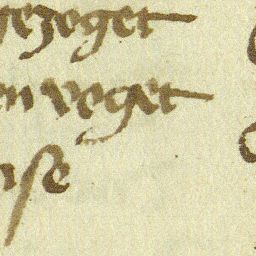 gezoget
en voget
ise